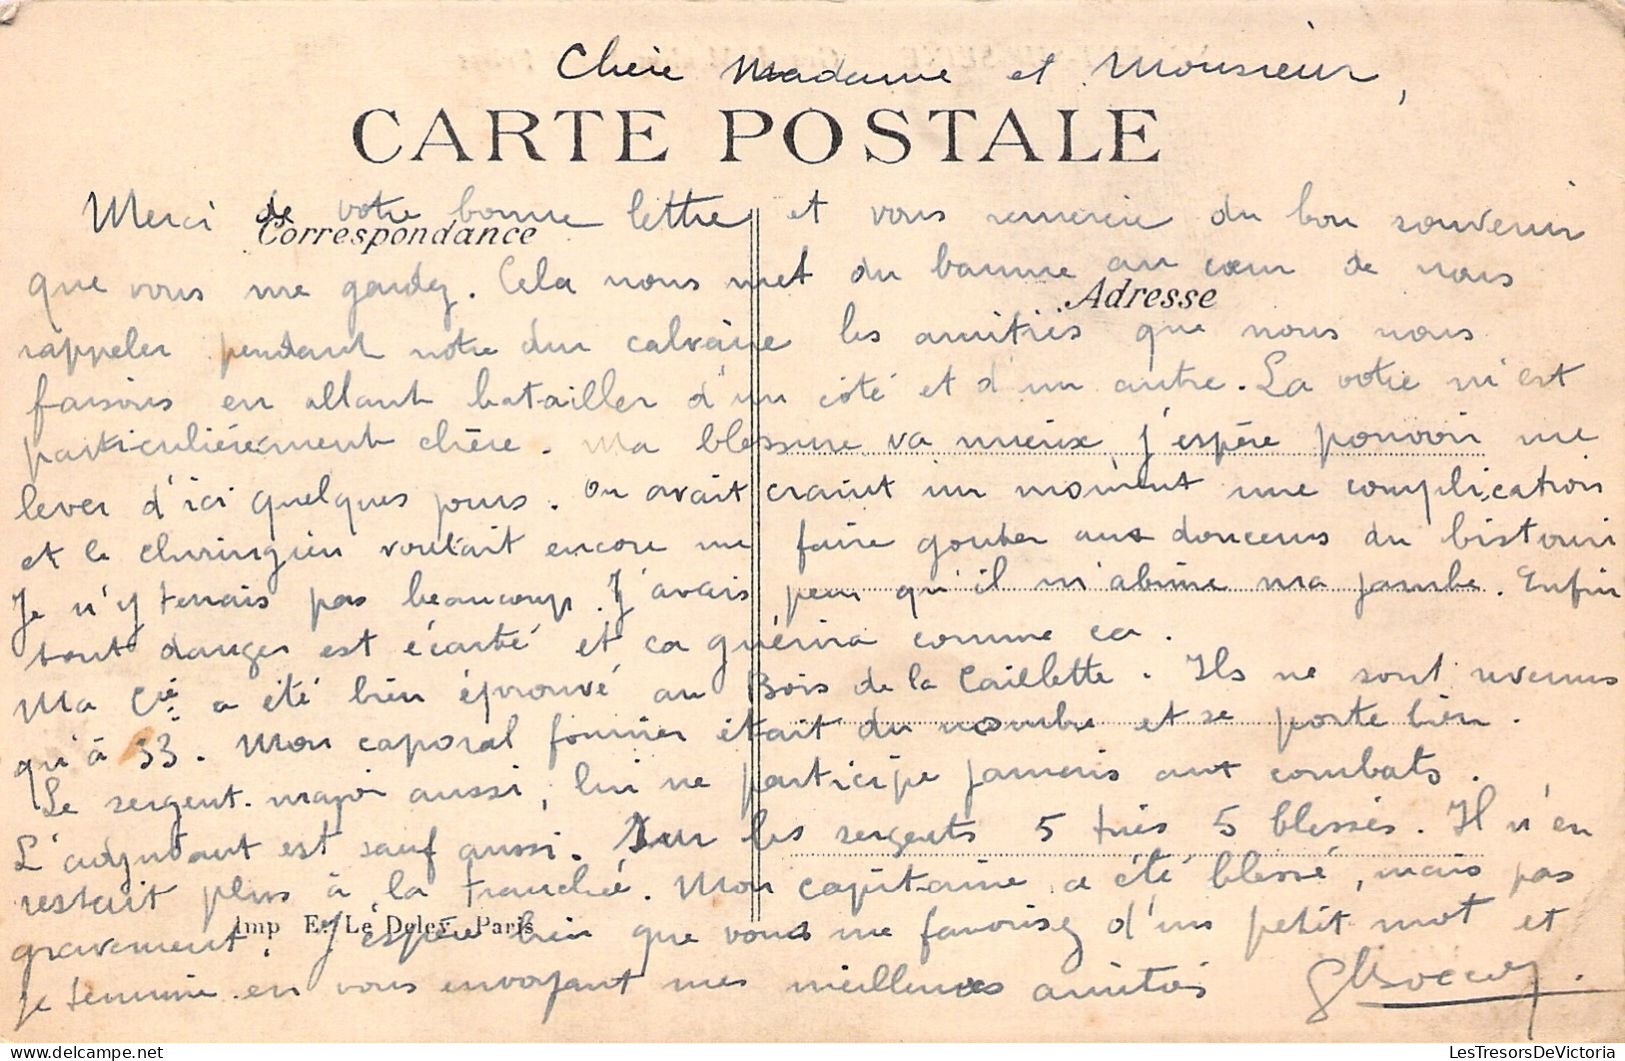 Chère Madame et Monsieur,
CARTE POSTALE
Merci de votre bonne lettre et vous remercie du bon souvenir
Correspondance
que vous me gardez. Cela nous met du baume au cœur de nous
Adresse
rappeler pendant notre dur calvaire les amitiés que nous nous
faisons en allant batailler d'un côté et d'un autre. La votre m'est
particulièrement chère. Ma blessure va mieux, j'espère pouvoir me
lever d'ici quelques jours. On avait craint un moment une complication
et le chirurgien voulait encore me faire gouter aux douceurs du bistouri
Je n'y tenais pas beaucoup. J'avais peur qu'il m'abime ma jambe. Enfin
tout danger est écarté et ca guérira comme ca.
Ma Cie a été bien éprouvé au Bois de la Caillette. Ils ne sont revenus
qu'à 33. Mon caporal fourrier était du nombre et se porte bien.
Le sergent-major aussi, lui ne participe jamais aux combats.
L'adjudant est sauf aussi. Sur les sergents 5 tués 5 blessés. Il n'en
restait plus à la tranchée. Mon capitaine a été blessé, mais pas
Imp E. Le Deley, Paris
gravement. J'espère bien que vous me favorisez d'un petit mot et
je termine en vous envoyant mes meilleures amitiés
LesTresorsDeVictoria.com